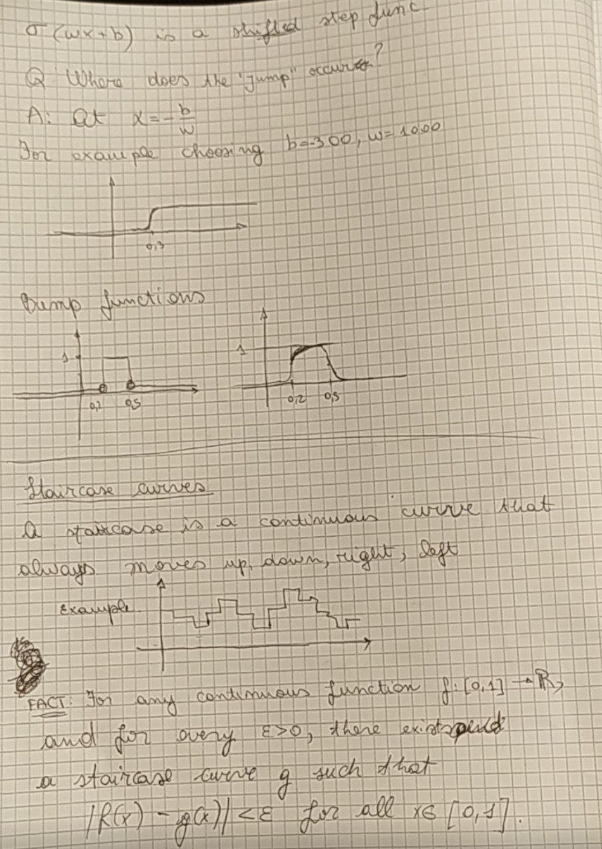 σ(wx+b) is a shifted step func
Q Where does the "jump" occur?
A: at x=-b/w
For example choosing b=-300, w=1000
0,3
Bump functions
1
0,2 0,5
1
0,2 0,5
Staircase curves
A staircase is a continuous curve that
always moves up, down, right, left
Example
FACT: For any continuous function f:[0,1]→ℝ,
and for every ε>0, there exists
a staircase curve g such that
|f(x) - g(x)| < ε for all x∈[0,1].